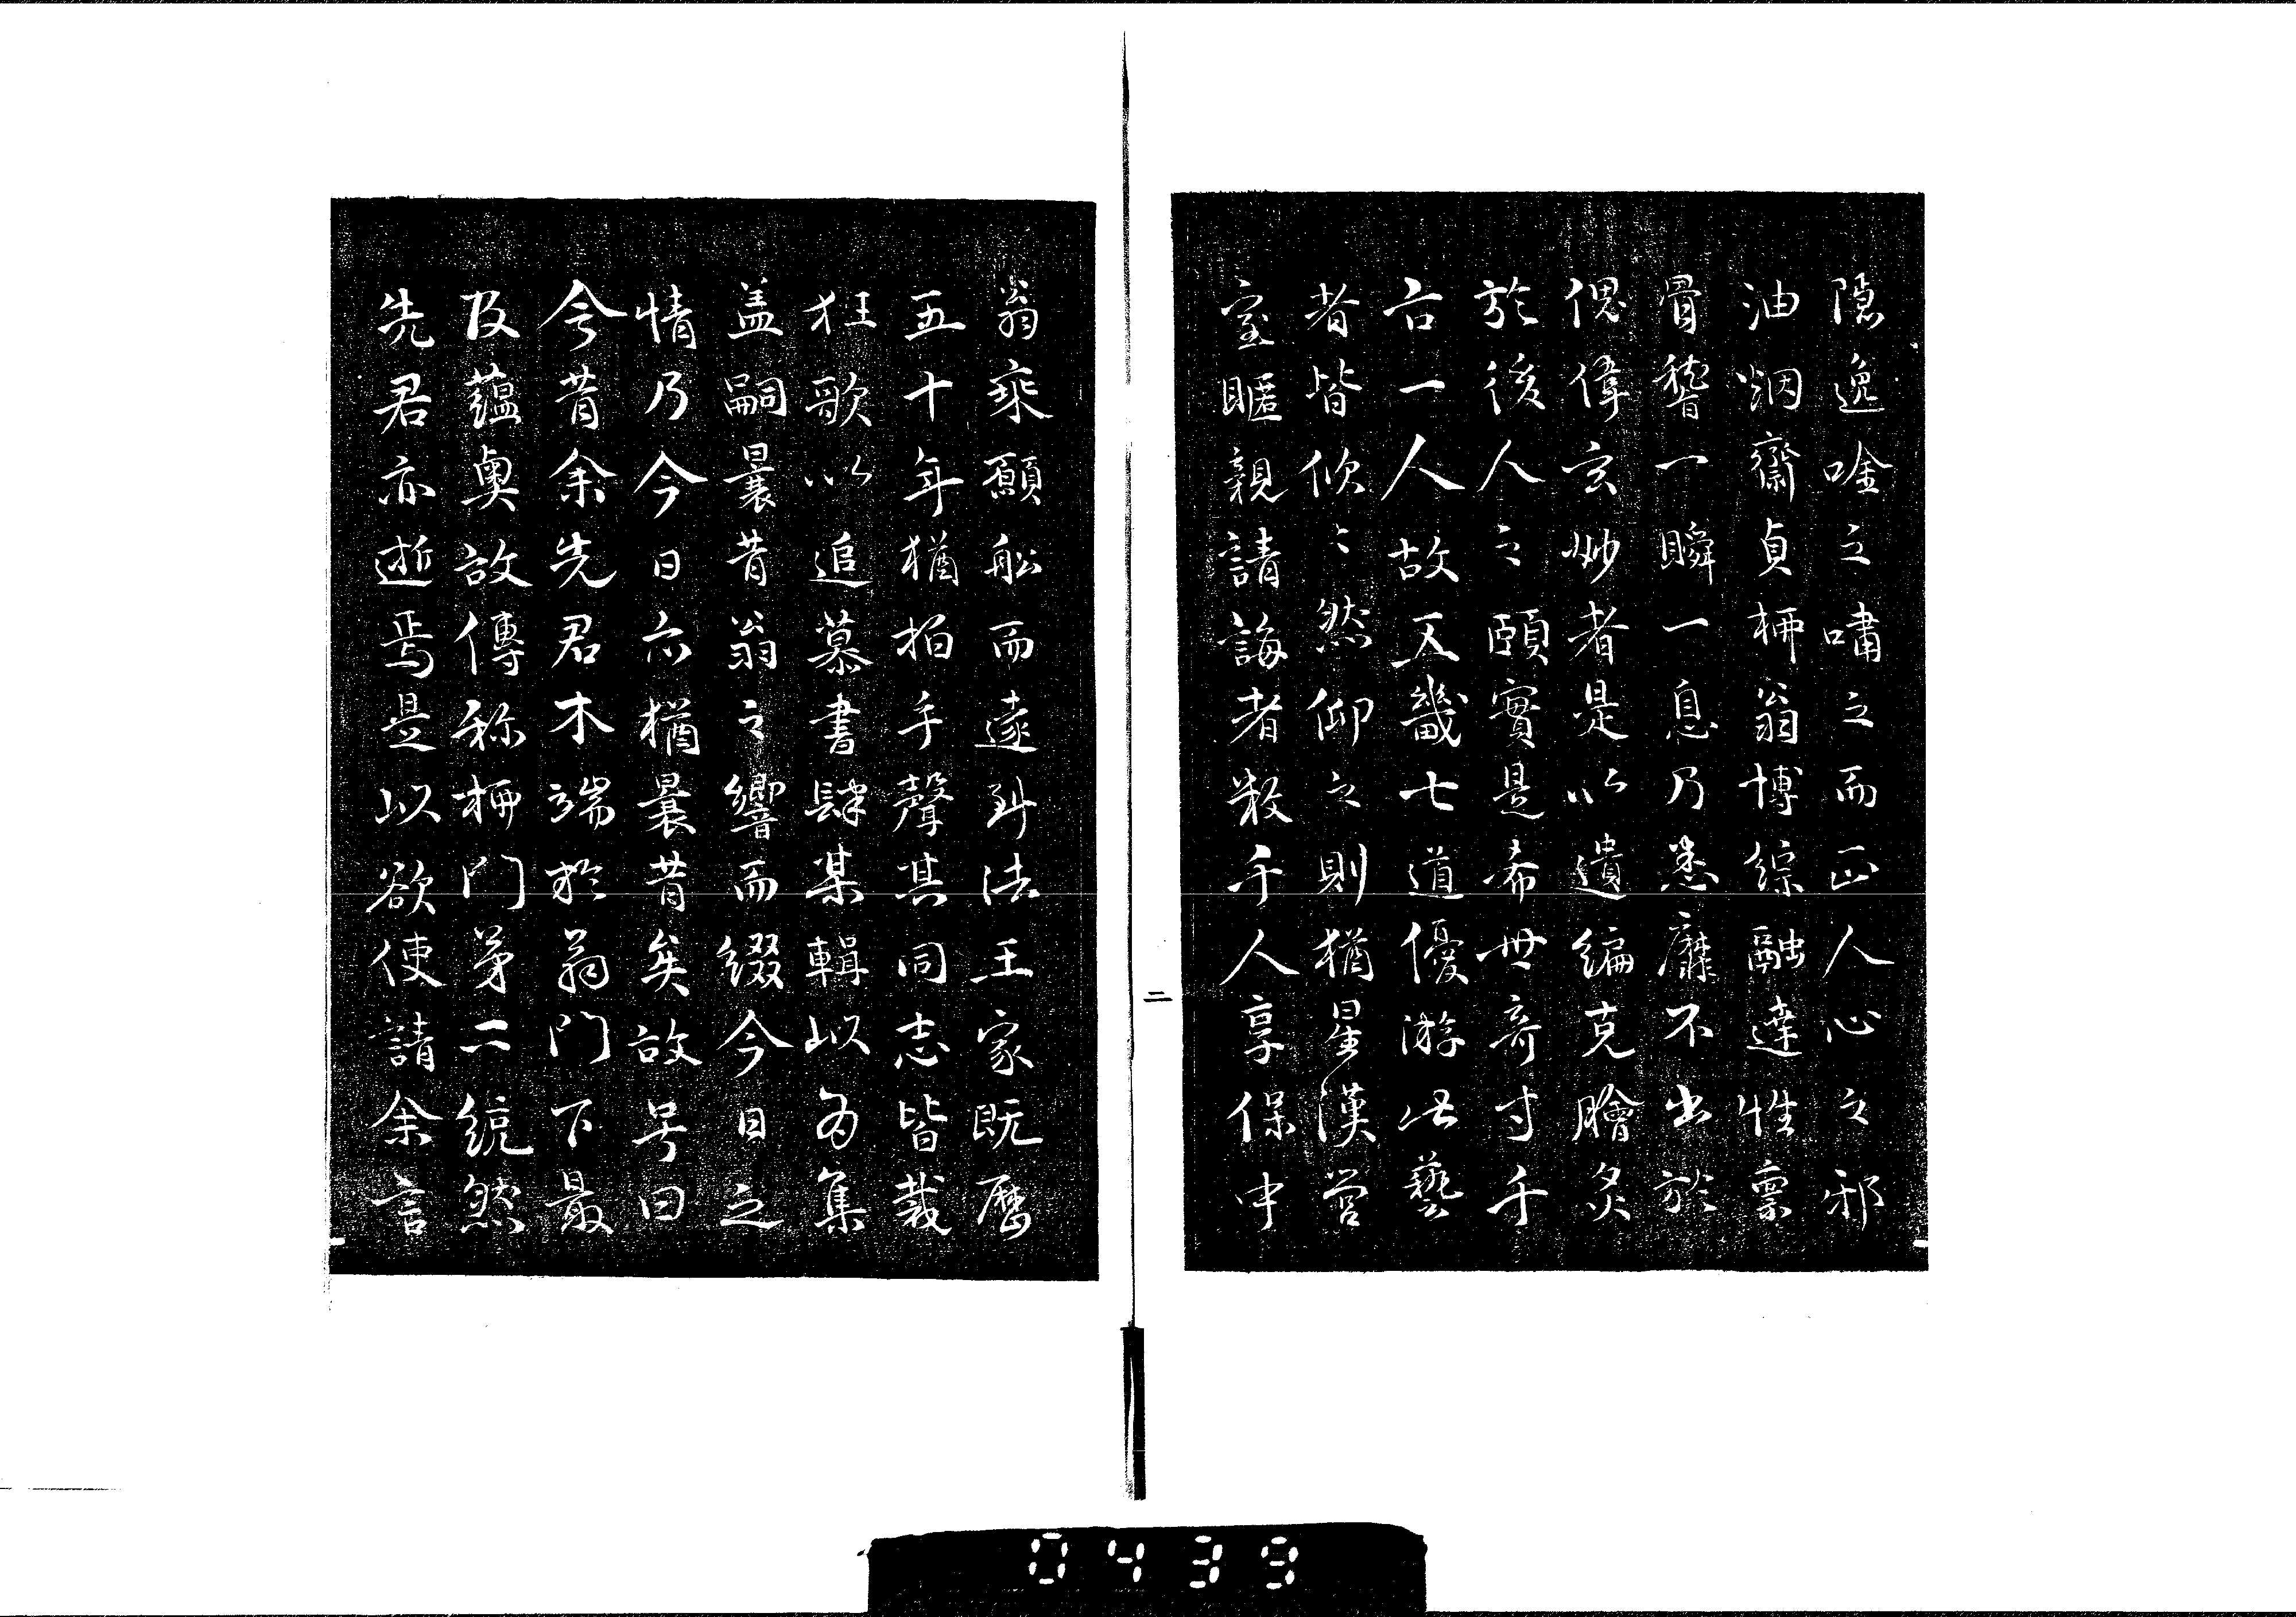 隠逸唫之嘯之而正人心之邪
油烟齋貞柳翁博綜融達性禀
骨稽一瞬一息乃悉靡不出於
傀偉玄妙者是以遺編克膾炙
於後人之頤實是希世奇才千
古一人故五畿七道優游此藝
者皆欣〻然仰之則猶星漢営
室暱親請誨者数千人享保中
二
翁乘願船而遠到法王家既歷
五十年猶拍手聲其同志皆裁
狂歌以追慕書肆某輯以為集
盖嗣曩昔翁之響而綴今日之
情乃今日亦猶曩昔矣故号曰
今昔余先君木端於翁門下最
及蘊奧故傳称柳門第二統然
先君亦逝焉是以欲使請余言
0439